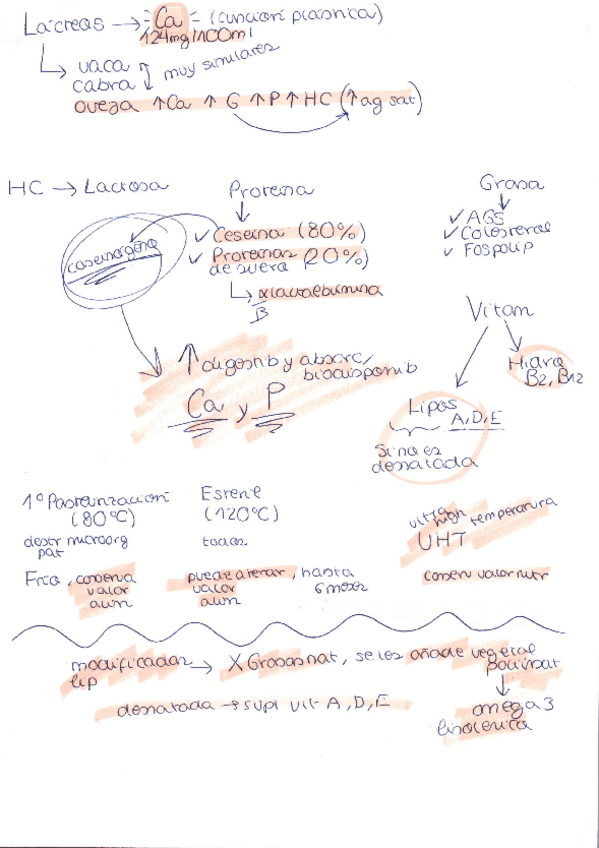 Lácreas → Ca (función plástica)
124mg/100ml
vaca
cabra
muy similares
oveja ↑Ca ↑ G ↑P ↑ HC (↑ag sat)
HC → Lactosa
Proteina
Grasa
✓ Caseina (80%)
✓ Proteinas de suero (20%)
✓ AGS
✓ Colesterol
✓ Fospolip
caseinógeno
αlactoalbumina
B
Vitam
↑ digestib y absorc/
biodisponib
Ca y P
Hidro
B2, B12
Lipos
A, D, E
Si no es
desnatada
1º Pasteurización
(80ºC)
destr microorg
pat
Frio, conserva
valor
alim
Esterie
(120ºC)
todos
puede alterar, hasta
valor
alim
6 meses
ultra
high temperatura
UHT
conserv valor nutr
modificadas
lip
→ X Grasas nat, se les añade vegetal
poliinsat
desnatada → supl vit A, D, E
omega 3
linolenico